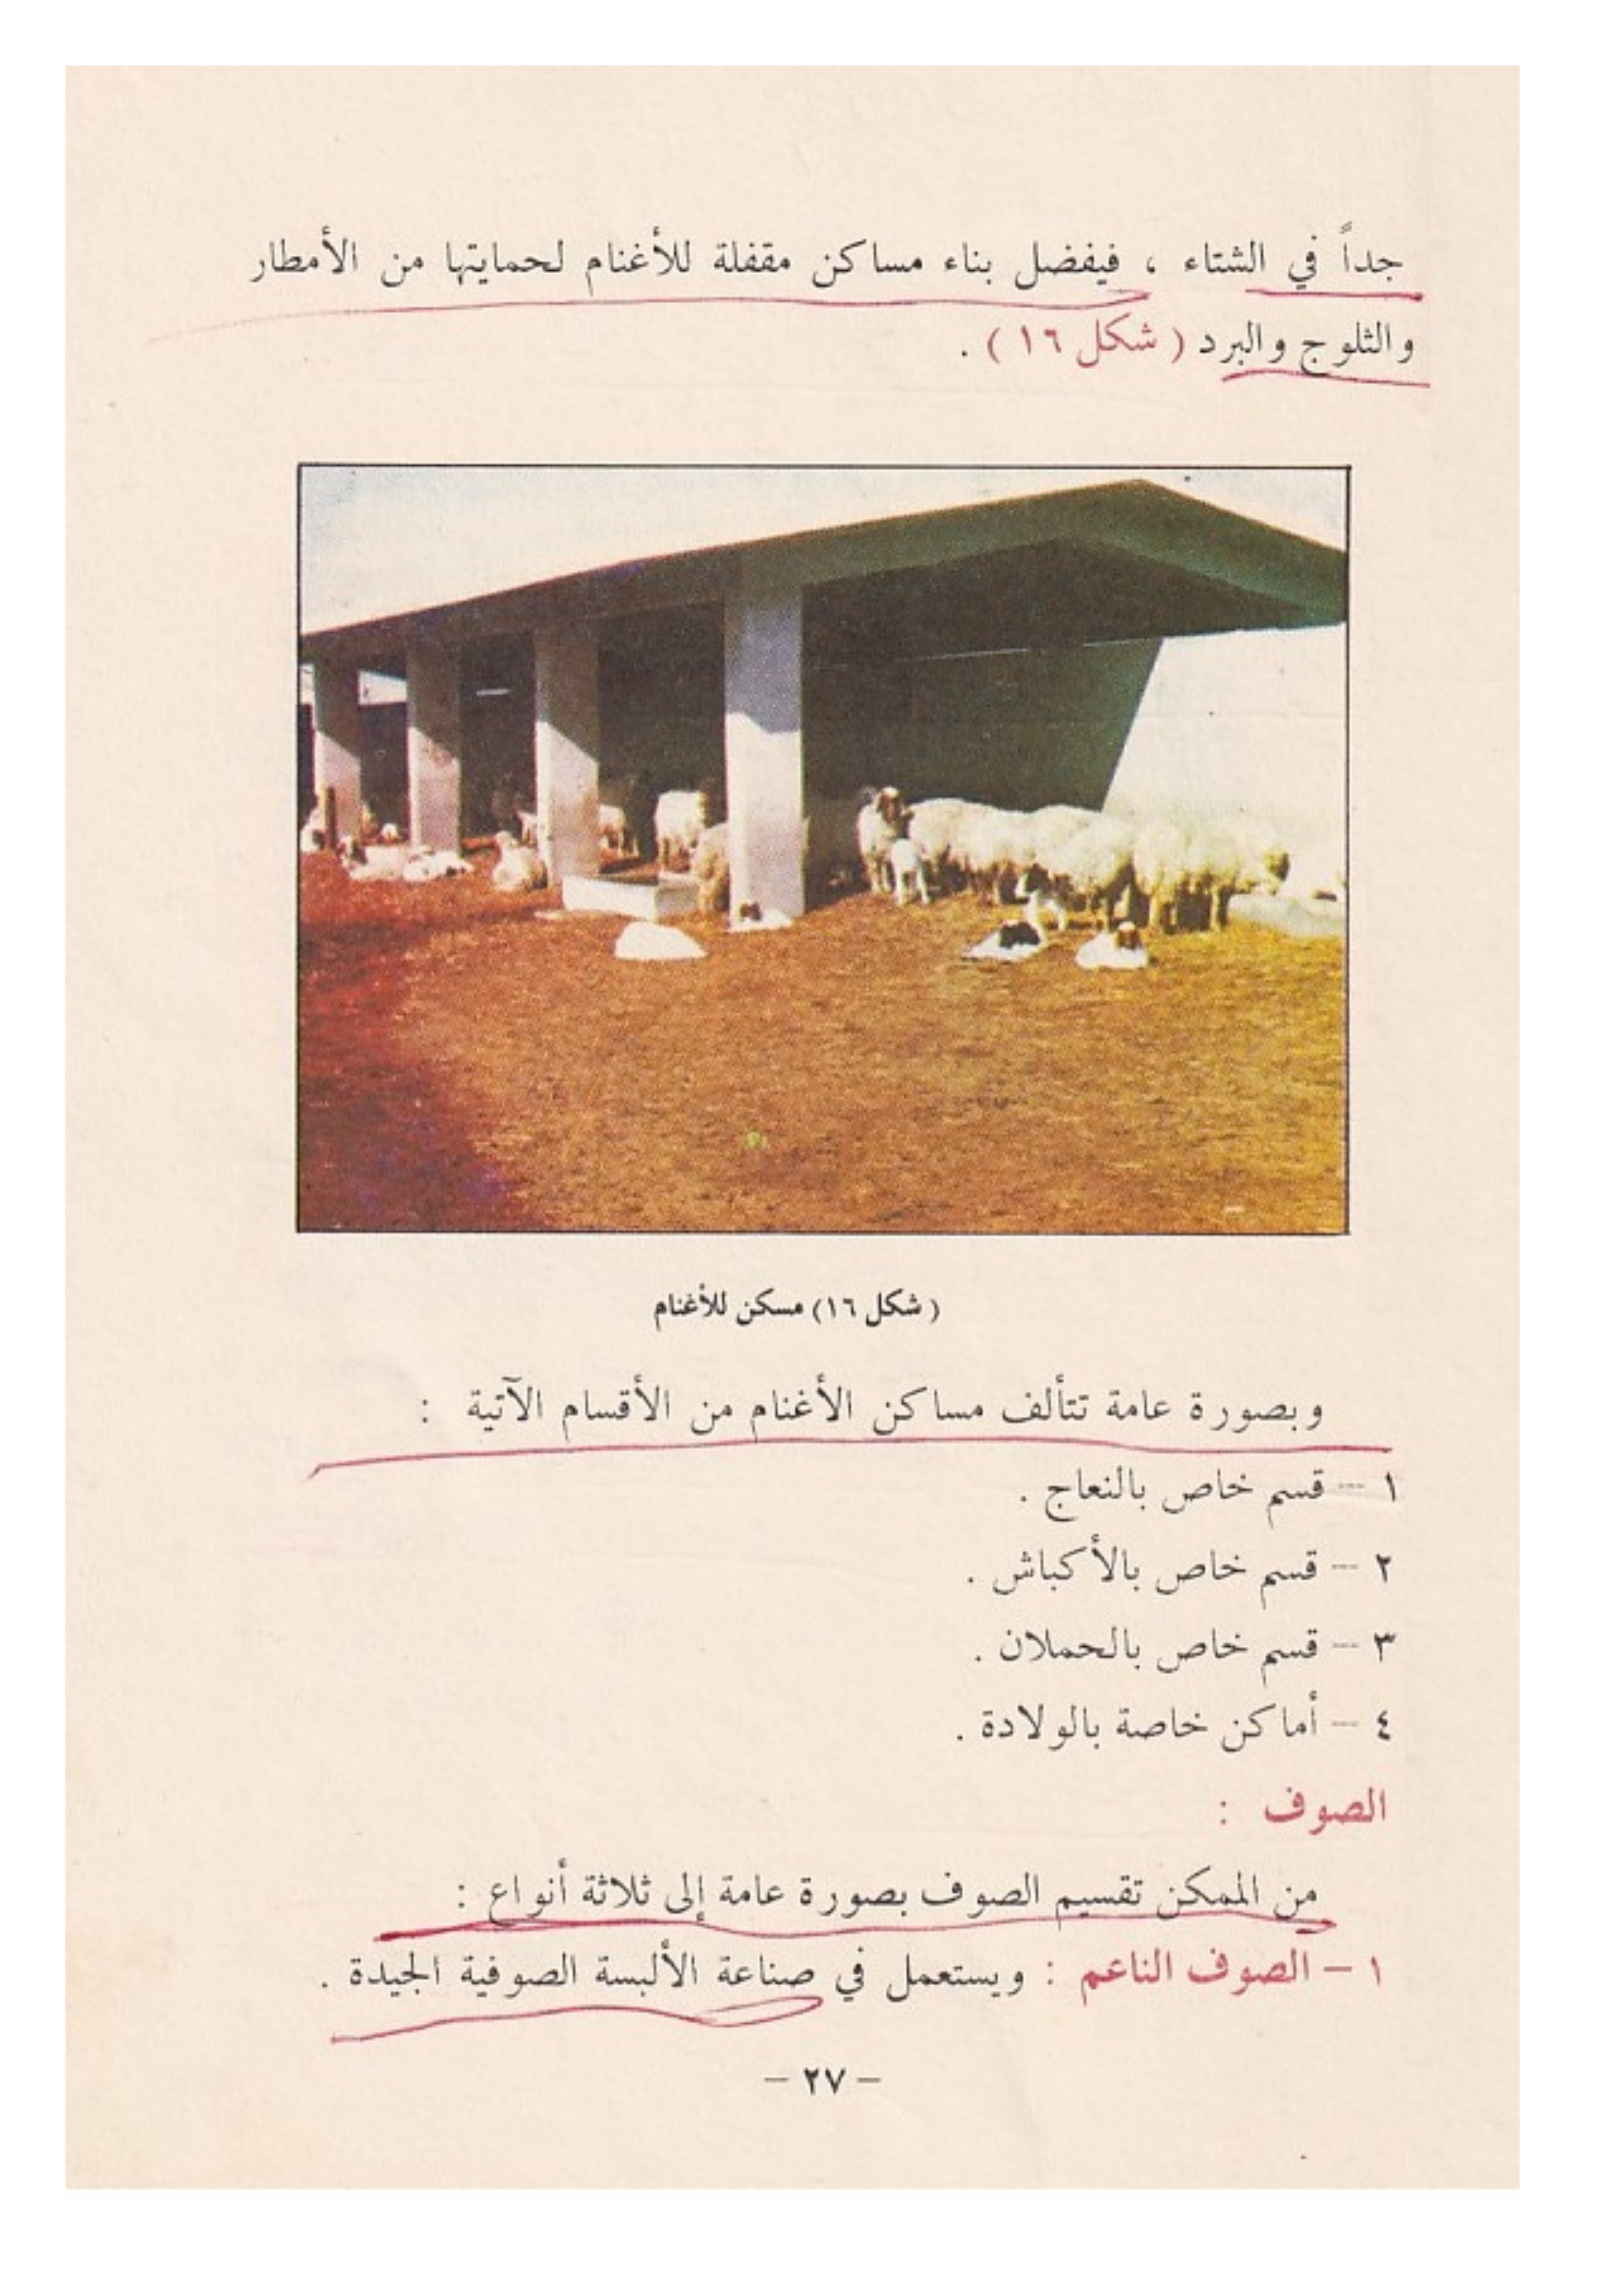 جداً في الشتاء ، فيفضل بناء مساكن مقفلة للأغنام لحمايتها من الأمطار
والثلوج والبرد ( شكل ١٦ ) .
( شكل ١٦) مسكن للأغنام
وبصورة عامة تتألف مساكن الأغنام من الأقسام الآتية :
١ – قسم خاص بالنعاج .
٢ – قسم خاص بالأكباش .
٣ – قسم خاص بالحملان .
٤ – أماكن خاصة بالولادة .
الصوف :
من الممكن تقسيم الصوف بصورة عامة إلى ثلاثة أنواع :
١ – الصوف الناعم : ويستعمل في صناعة الألبسة الصوفية الجيدة .
– ٢٧ –